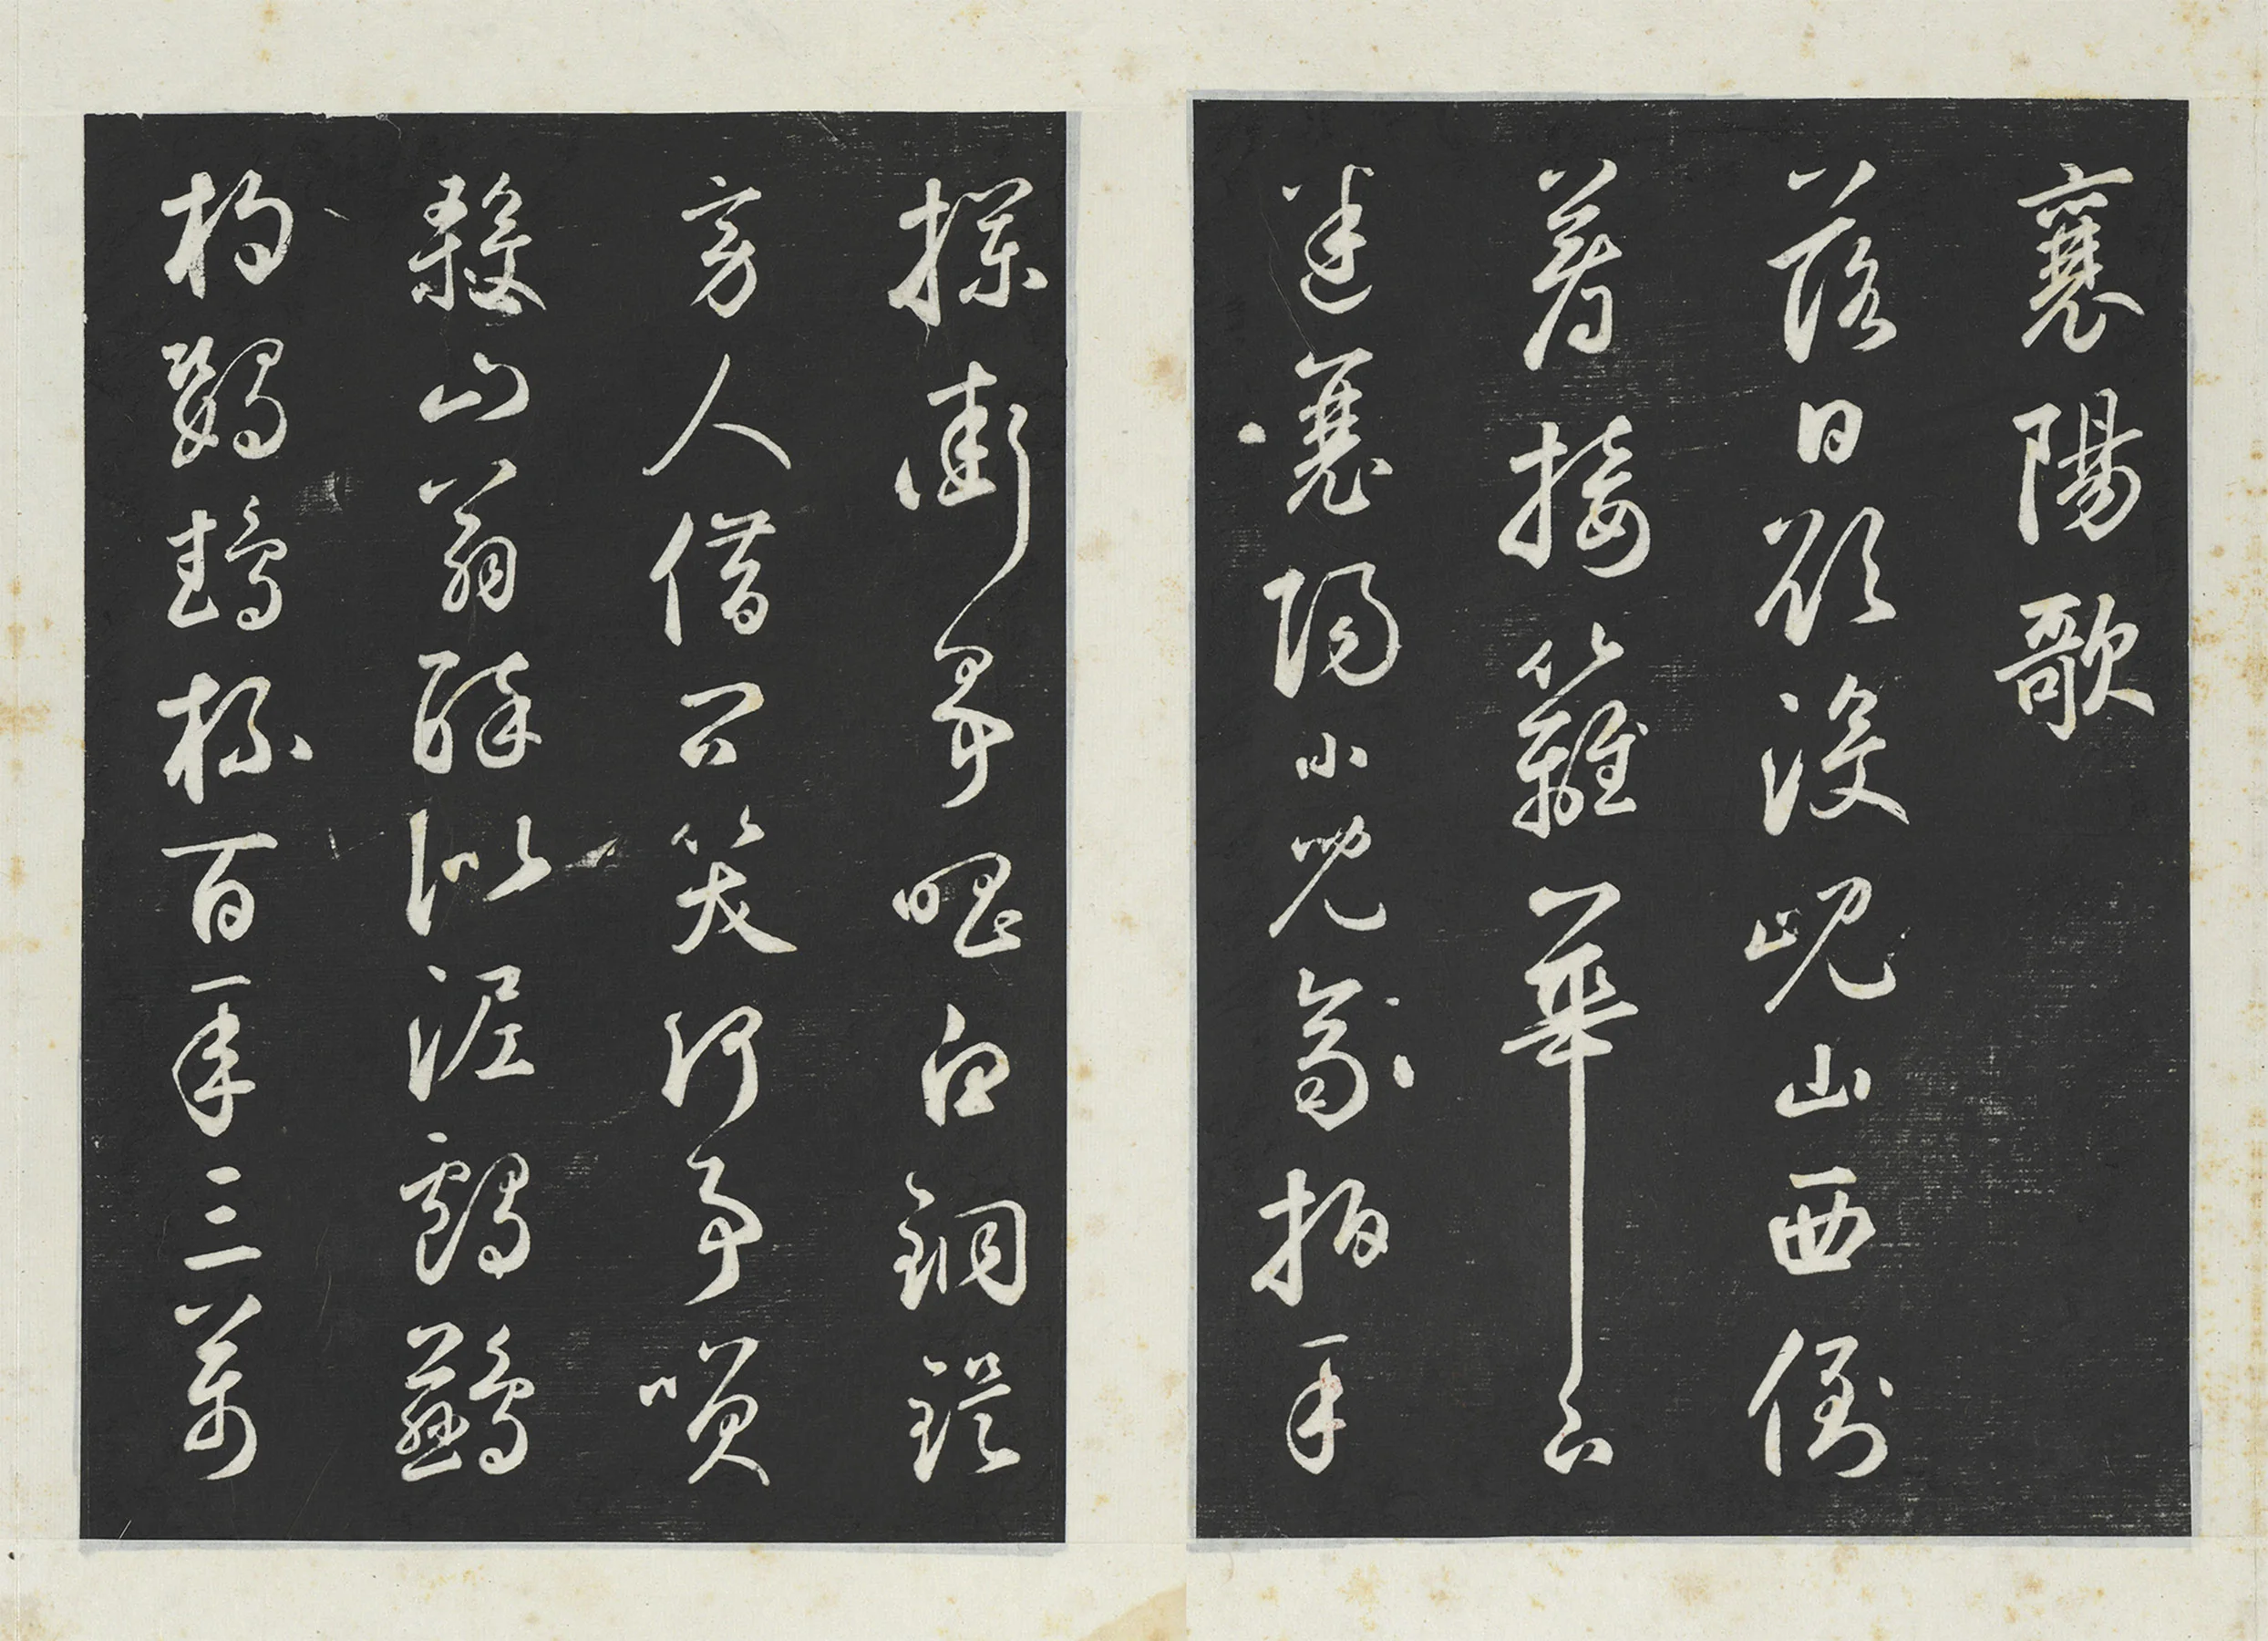 襄陽歌
落日欲沒峴山西倒
着接籬華下
迷襄陽小兒齊拍手
攔街爭唱白銅鍉
旁人借問笑何事咲
殺山翁醉似泥鸕鷀
杓鸚鵡杯百年三萬